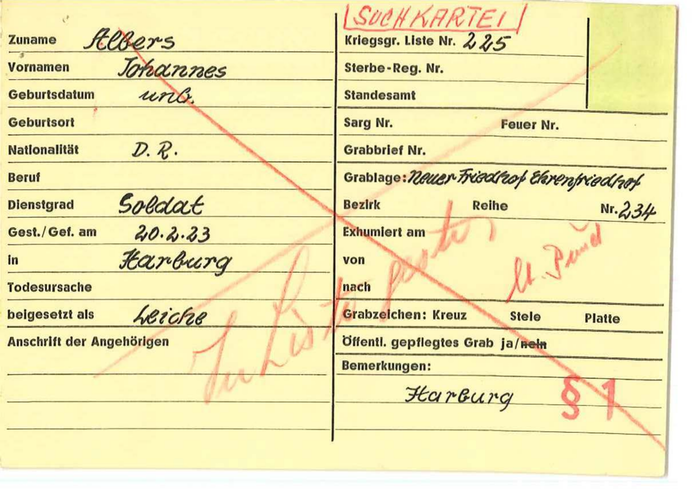 SUCHKARTEI
Zuname Albers
Vornamen Johannes
Geburtsdatum unb.
Geburtsort
Nationalität D. R.
Beruf
Dienstgrad Soldat
Gest./Gef. am 20.2.23
in Harburg
Todesursache
beigesetzt als Leiche
Anschrift der Angehörigen
Kriegsgr. Liste Nr. 225
Sterbe-Reg. Nr.
Standesamt
Sarg Nr. Feuer Nr.
Grabbrief Nr.
Grablage: Neuer Friedhof Ehrenfriedhof
Bezirk Reihe Nr. 234
Exhumiert am
von
nach
Grabzeichen: Kreuz Stele Platte
Öffentl. gepflegtes Grab ja/nein
Bemerkungen:
Harburg
§ 1
In Liste